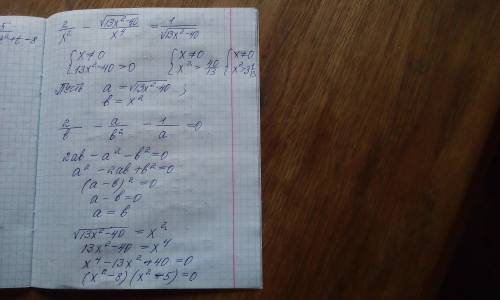 2/x² - √(13x²-40)/x⁴ = 1/√(13x²-40)
{x≠0 {x≠0 {x≠0
{13x²-40>0 {x²>40/13 {x²>3 1/13
Пусть a=√(13x²-40) ;
b=x²
2/b - a/b² - 1/a =0
2ab-a²-b²=0
a²-2ab+b²=0
(a-b)²=0
a-b=0
a=b
√(13x²-40) = x²
13x²-40=x⁴
x⁴-13x²+40=0
(x²-8)(x²-5)=0